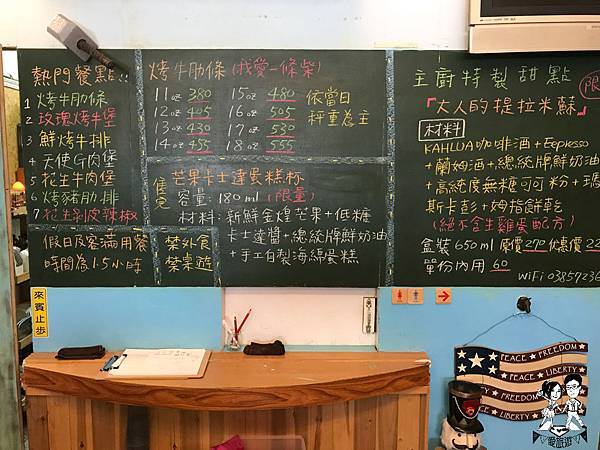 熱門餐點!!
1 烤牛肋條
2 玫瑰烤牛堡
3 鮮烤牛排
4 天使G肉堡
5 花生牛肉堡
6 烤豬肋排
7 花生剝皮辣椒
假日及客滿用餐
時間為1.5小時
禁外食
禁桌遊
烤牛肋條(我愛一條柴)
11oz 380 15oz 480
12oz 405 16oz 505
13oz 430 17oz 530
14oz 455 18oz 555
依當日
秤重為主
售完
芒果卡士達蛋糕杯
容量:180ml(限量)
材料:新鮮金煌芒果+低糖
卡士達醬+總統牌鮮奶油
+手工自製海綿蛋糕
主廚特製甜點
限
『大人的提拉米蘇』
材料
KAHLUA咖啡酒+Espresso
+蘭姆酒+總統牌鮮奶油
+高純度無糖可可粉+瑪
斯卡彭+姆指餅乾
(絕不含生雞蛋配方)
盒裝650ml 原價270 優惠價22
單份內用 60
WiFi 03857236
來賓止步
PEACE FREEDOM
PEACE LIBERTY
PEACE FREEDOM
LIBERTY
愛旅遊